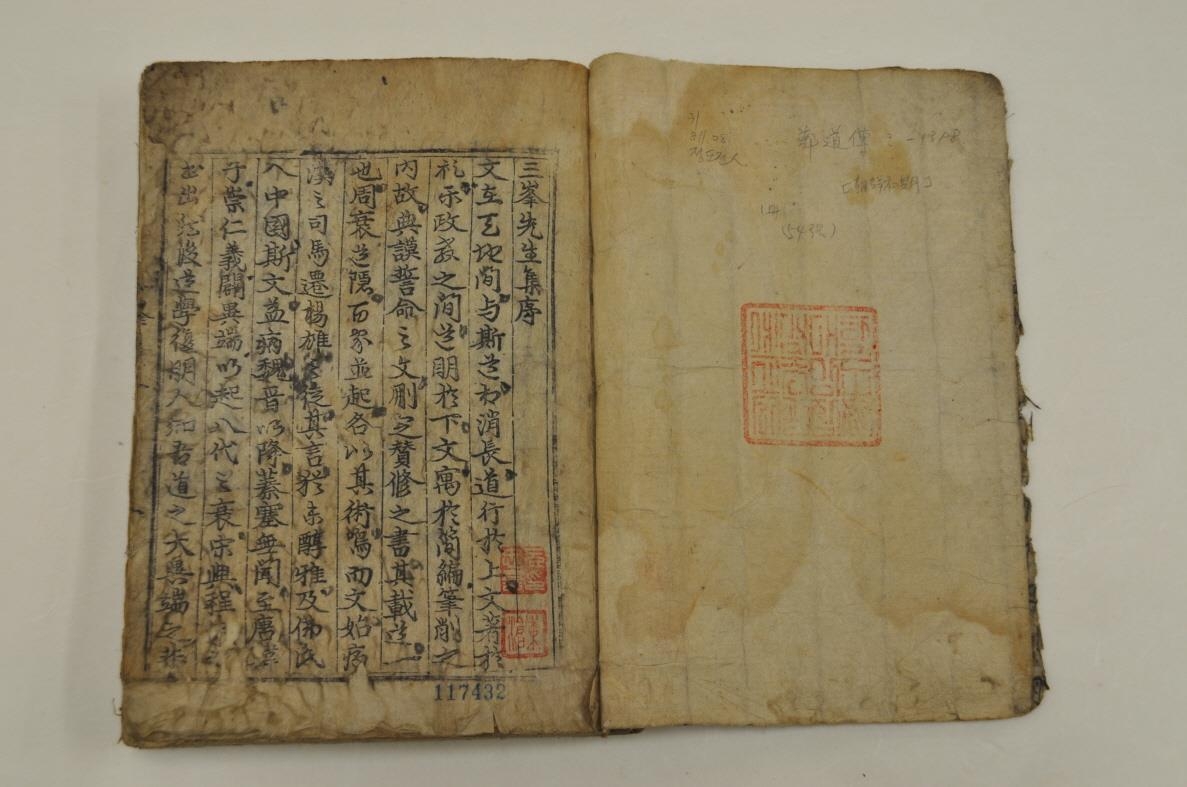 鄭道傳 : -1398
(54張)
三峯先生集序
文在天地間与斯道相消長道行於上文著於
礼乐政教之間道明於下文寓於簡編筆削之
内故典謨誓命之文刪定賛修之書其載道一
也周衰道隱百家並起各以其術鳴而文始病
漢之司馬遷楊雄之徒其言猶未醇雅及佛氏
入中國斯文益病魏晉以降蓁塞無聞至唐韓
子崇仁義闢異端以起八代之衰宋興程
出然後道學復明人知吾道之大異端之非
117432